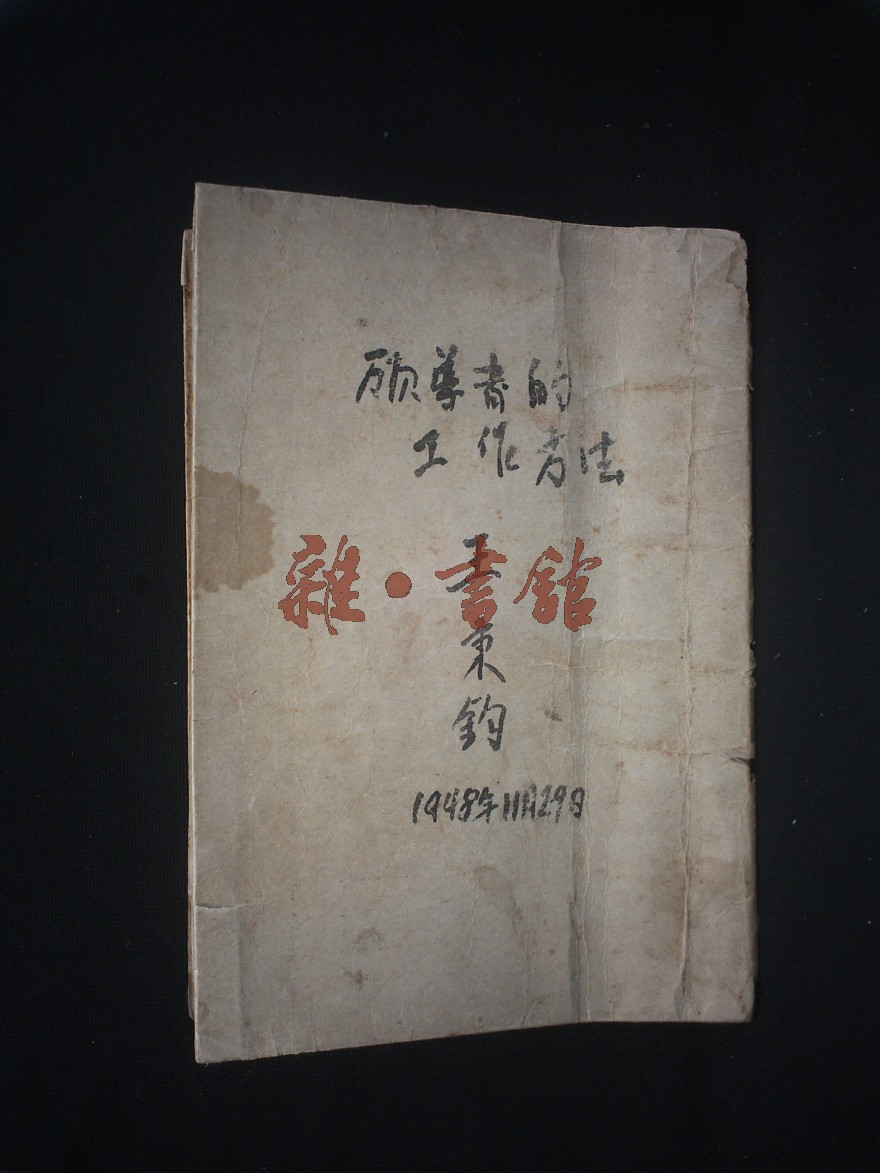 领导者的
工作方法
雜·書館
王
秉
鈞
1948年11月29日